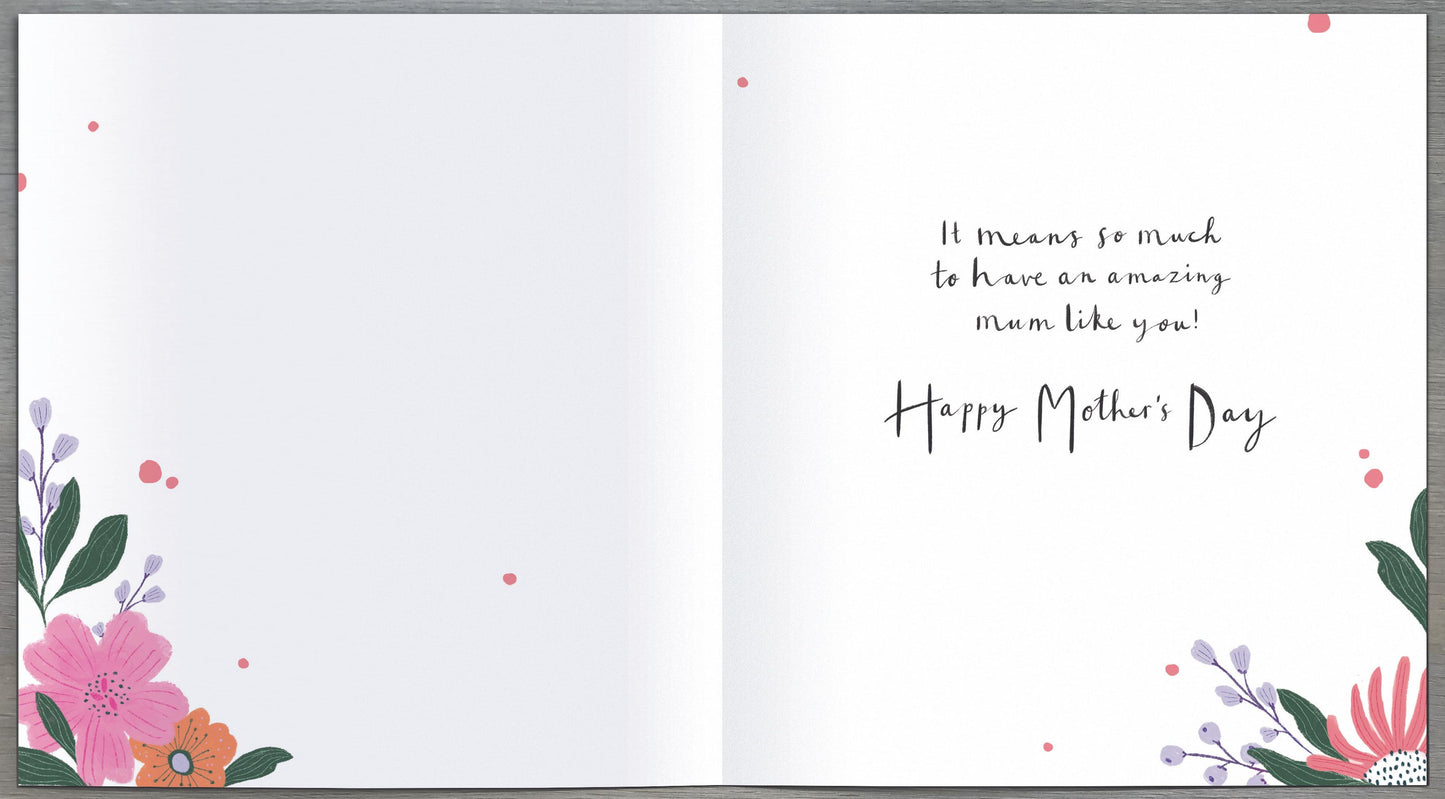 It means so much
to have an amazing
mum like you!
Happy Mother's Day